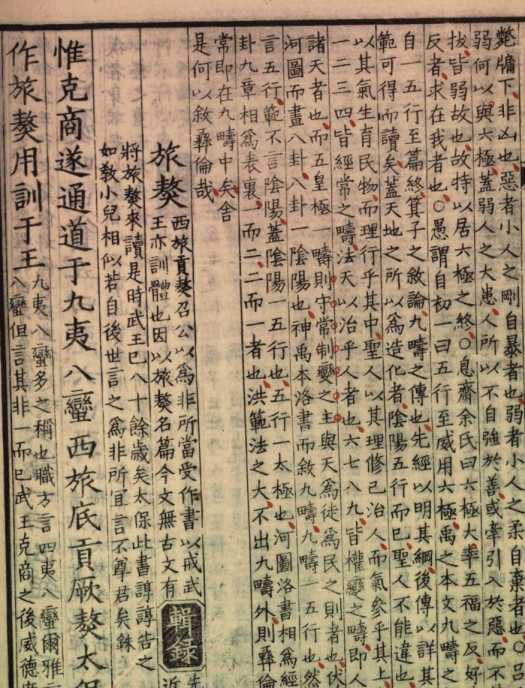 弊牖下非凶也惡者小人之剛自暴者也弱者小人之柔自棄者也○呂
弱何以與六極蓋弱人之大患人所以不自強於善或牽引入於惡而不
拔皆弱故也故特以居六極之終○息齋余氏曰六極大率五福之反好
反者求在我者也○愚謂自初一曰五行至威用六極禹之本文九疇之
自一五行至篇終箕子之敘論九疇之傳也先經以明其綱後傳以詳其
範可得而讀矣蓋天地之所以為造化者陰陽五行而已聖人不能違也
以其氣生育民物而理行乎其中聖人以其理修已治人而氣參乎其上
一二三四皆經常之疇法天以治乎人者也六七八九皆權變之疇即人
諸天者也而五皇極一疇則守常制變之主與天為徒為民之則者也伏
河圖而畫八卦八卦一陰陽也神禹本洛書而敘九疇九疇一五行也然
言五行範不言陰陽蓋陰陽一五行也五行一太極也河圖洛書相為經
卦九章相為表裏一而二二而一者也洪範法之大不出九疇外則彝倫
常即在九疇中矣舍
是何以敘彝倫哉
旅獒
西旅貢獒召公以為非所當受作書以戒武
王亦訓體也因以旅獒名篇今文無古文有
輯錄
將旅獒來讀是時武王已八十餘歲矣太保此書諄諄告之
如教小兒相似若自後世言之為非所宜言不尊君矣銖
惟克商遂通道于九夷八蠻西旅底貢厥獒太保
作旅獒用訓于王
九夷八蠻多之稱也職方言四夷八蠻爾雅言
八蠻但言其非一而已武王克商之後威德廣